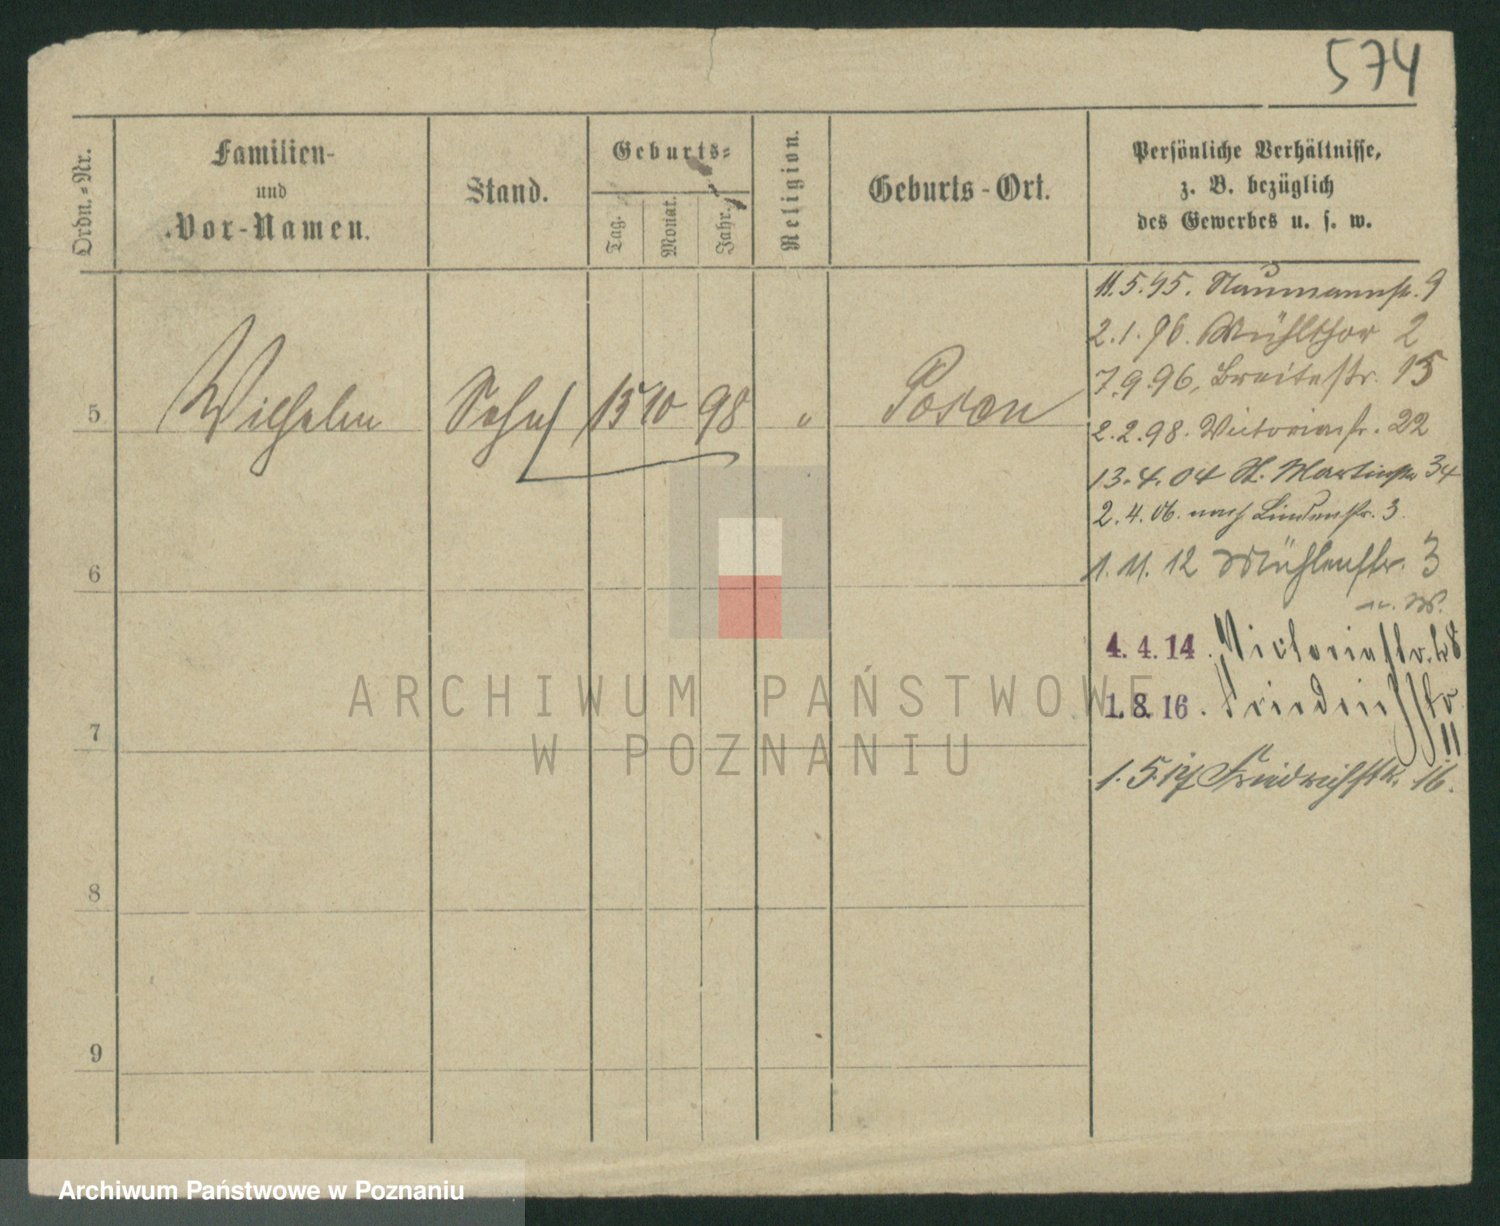 574
Ordn.-Nr.
Familien-
und
Vor-Namen.
Stand.
Geburts-
Tag.
Monat.
Jahr.
Religion.
Geburts-Ort.
Persönliche Verhältnisse,
z. B. bezüglich
des Gewerbes u. s. w.
5 Wilhelm Sohn 15 10 98 " Posen
11.5.95. Naumannstr. 9
2.1.96. Mühlthor 2
7.9.96, Breitestr. 15
2.2.98. Victoriastr. 22
13.4.04 St. Martinstr 34
2.4.06. nach Lindenstr. 3.
1.11.12 Mühlenstr. 3
4.4.14. Victoriastr.
1.8.16. Friedrichstr
11
1.5.17 Friedrichstr. 16.
6
7
8
9
ARCHIWUM PAŃSTWOWE
W POZNANIU
Archiwum Państwowe w Poznaniu